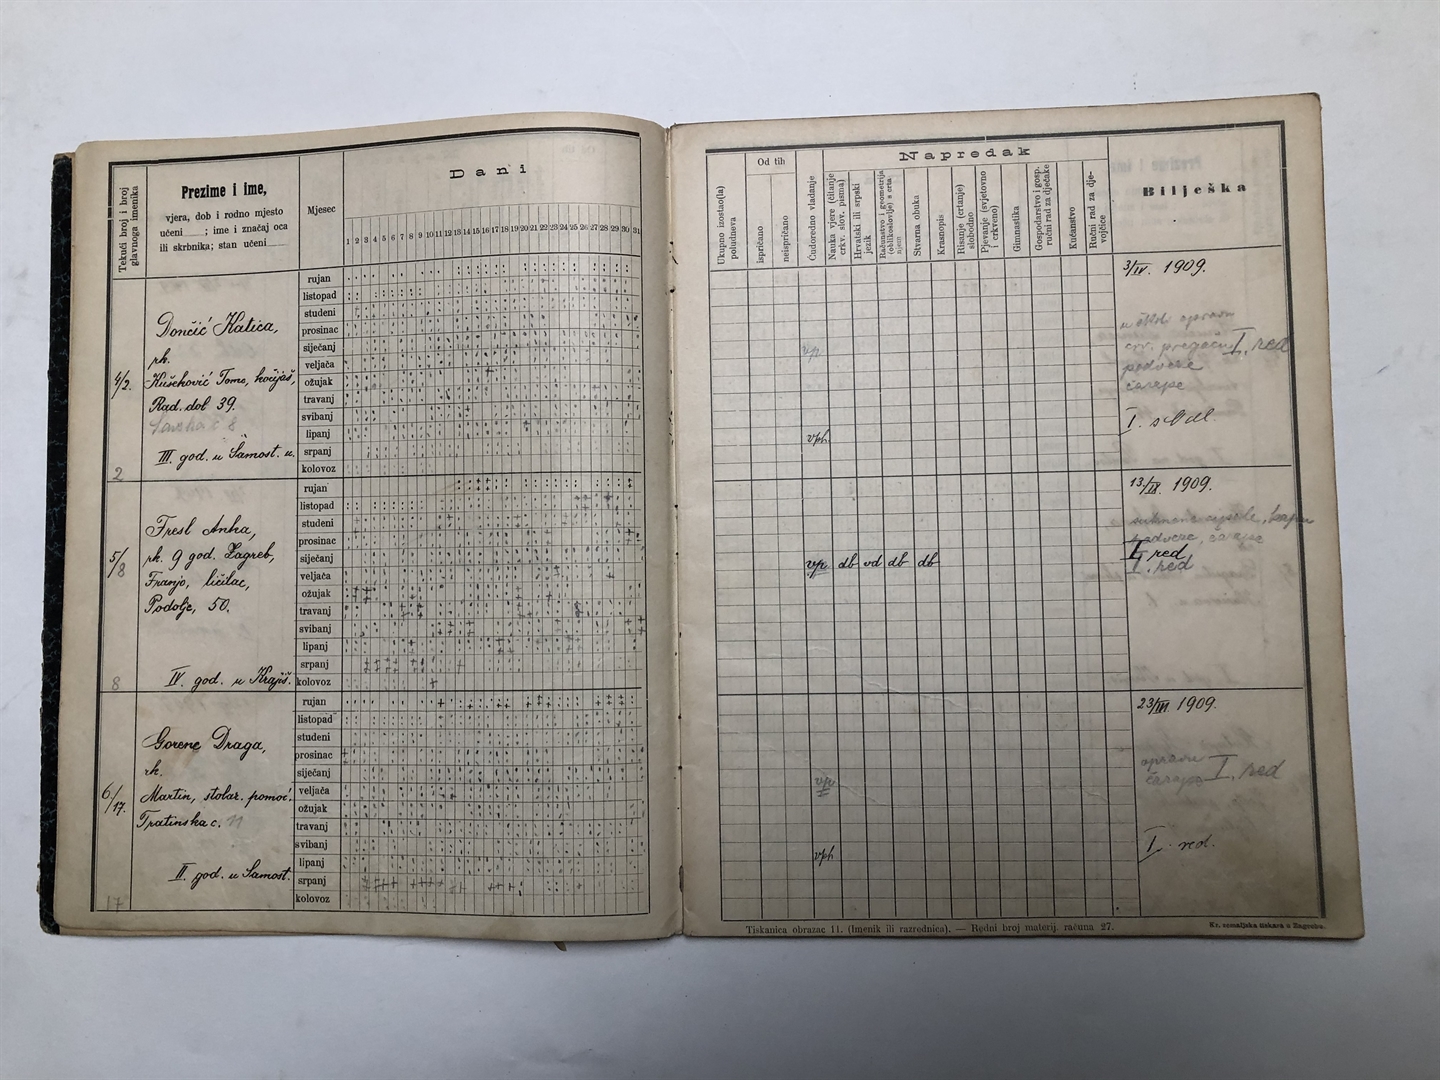 Tekući broj i broj
glavnoga imenika
Prezime i ime,
vjera, dob i rodno mjesto
učeni____; ime i značaj oca
ili skrbnika; stan učeni____
Mjesec
Dani
1 2 3 4 5 6 7 8 9 10 11 12 13 14 15 16 17 18 19 20 21 22 23 24 25 26 27 28 29 30 31
4/2.
Dončić Katica,
rk.
Tomo, kočijaš,
Rad. dol 39.
III. god. u Samost. u.
2
rujan
listopad
studeni
prosinac
siječanj
veljača
ožujak
travanj
svibanj
lipanj
srpanj
kolovoz
5/8
Fresl Anka,
rk. 9 god. Zagreb,
Franjo, ličilac,
Podolje, 50.
IV. god. u Krajiš.
8
rujan
listopad
studeni
prosinac
siječanj
veljača
ožujak
travanj
svibanj
lipanj
srpanj
kolovoz
6/17.
Gorene Draga,
rk.
Martin, stolar. pomoć.
Tratinska c. 11
II. god. u Samost.
17
rujan
listopad
studeni
prosinac
siječanj
veljača
ožujak
travanj
svibanj
lipanj
srpanj
kolovoz
Ukupno izostao(la)
poludneva
Od tih
ispričano
neispričano
Napredak
Ćudoredno vladanje
Nauka vjere (čitanje
crkv. slov. pisma)
Hrvatski ili srpski
jezik
Računstvo i geometrija
(oblikoslovje) s crta
njem
Stvarna obuka
Krasnopis
Risanje (crtanje)
slobodno
Pjevanje (svjetovno
i crkveno)
Gimnastika
Gospodarstvo i gosp.
ručni rad za dječake
Kućanstvo
Ručni rad za dje-
vojčice
Bilješka
3/IV. 1909.
vp.
I. red
podveze
čarape
vph.
13/IX. 1909.
podveze, čarape
vp db vd db db
I. red
I. red
23/III 1909.
opravu
čarape I. red
vp
vph
I. red.
Tiskanica obrazac 11. (Imenik ili razrednica). — Redni broj materij. računa 27.
Kr. zemaljska tiskara u Zagrebu.